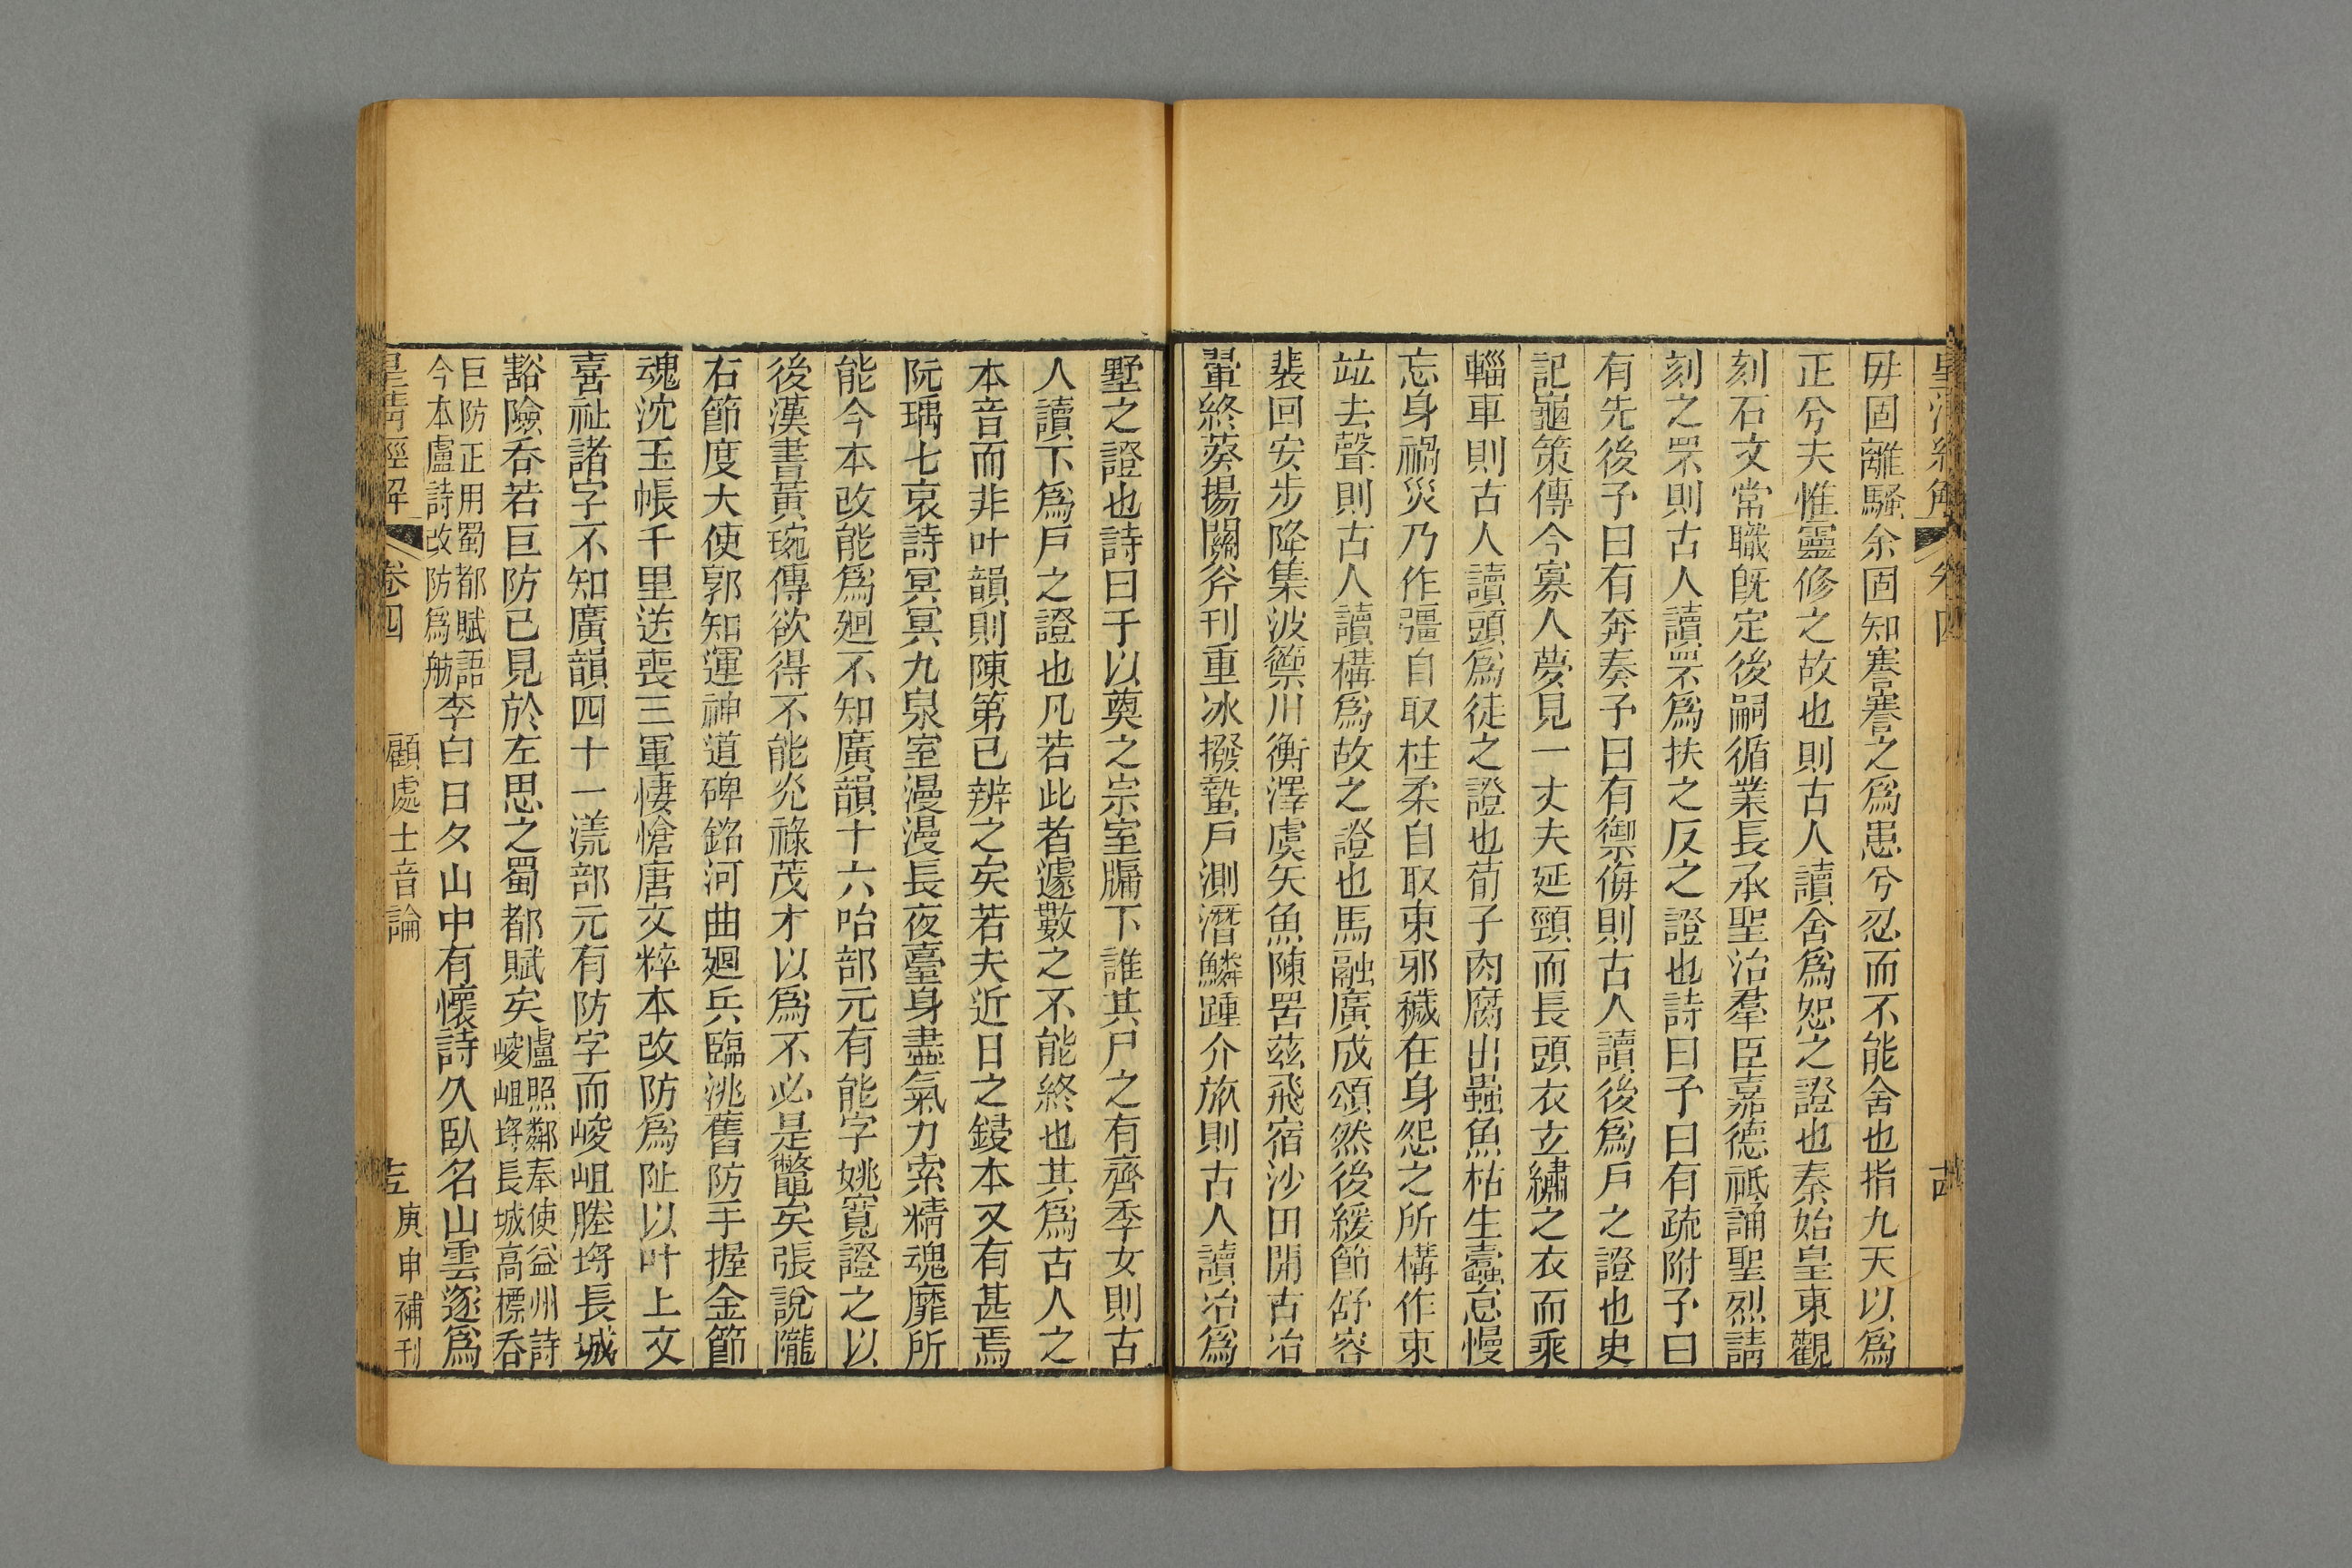 皇清經解 卷四
毋固離騷余固知謇謇之爲患兮忍而不能舍也指九天以爲
正兮夫惟靈修之故也則古人讀舍爲恕之證也秦始皇東觀
刻石文常職既定後嗣循業長承聖治羣臣嘉德祗誦聖烈請
刻之罘則古人讀罘爲扶之反之證也詩曰予曰有疏附予曰
有先後予曰有奔奏予曰有禦侮則古人讀後爲戶之證也史
記龜策傳今寡人夢見一丈夫延頸而長頭衣玄繡之衣而乘
輜車則古人讀頭爲徒之證也荀子肉腐出蟲魚枯生蠹怠慢
忘身禍災乃作彊自取柱柔自取束邪穢在身怨之所構作束
竝去聲則古人讀構爲故之證也馬融廣成頌然後緩節舒容
裴回安步降集波籞川衡澤虞矢魚陳罟茲飛宿沙田開古冶
翬終葵揚關斧刊重冰撥蟄戶測潛鱗踵介旅則古人讀冶爲
墅之證也詩曰于以奠之宗室牖下誰其尸之有齊季女則古
人讀下爲戶之證也凡若此者遽數之不能終也其爲古人之
本音而非叶韻則陳第已辨之矣若夫近日之鋟本又有甚焉
阮瑀七哀詩冥冥九泉室漫漫長夜臺身盡氣力索精魂靡所
能今本改能爲廻不知廣韻十六咍部元有能字姚寬證之以
後漢書黃琬傳欲得不能光祿茂才以爲不必是鼈矣張說隴
右節度大使郭知運神道碑銘河曲廻兵臨洮舊防手握金節
魂沈玉帳千里送喪三軍悽愴唐文粹本改防爲阯以叶上文
喜祉諸字不知廣韻四十一漾部元有防字而峻岨塍埒長城
豁險吞若巨防已見於左思之蜀都賦矣盧照鄰奉使益州詩
峻岨埒長城高標吞
巨防正用蜀都賦語
今本盧詩改防爲舫李白日夕山中有懷詩久臥名山雲遂爲
皇清經解 卷四 顧處士音論 庚申補刊